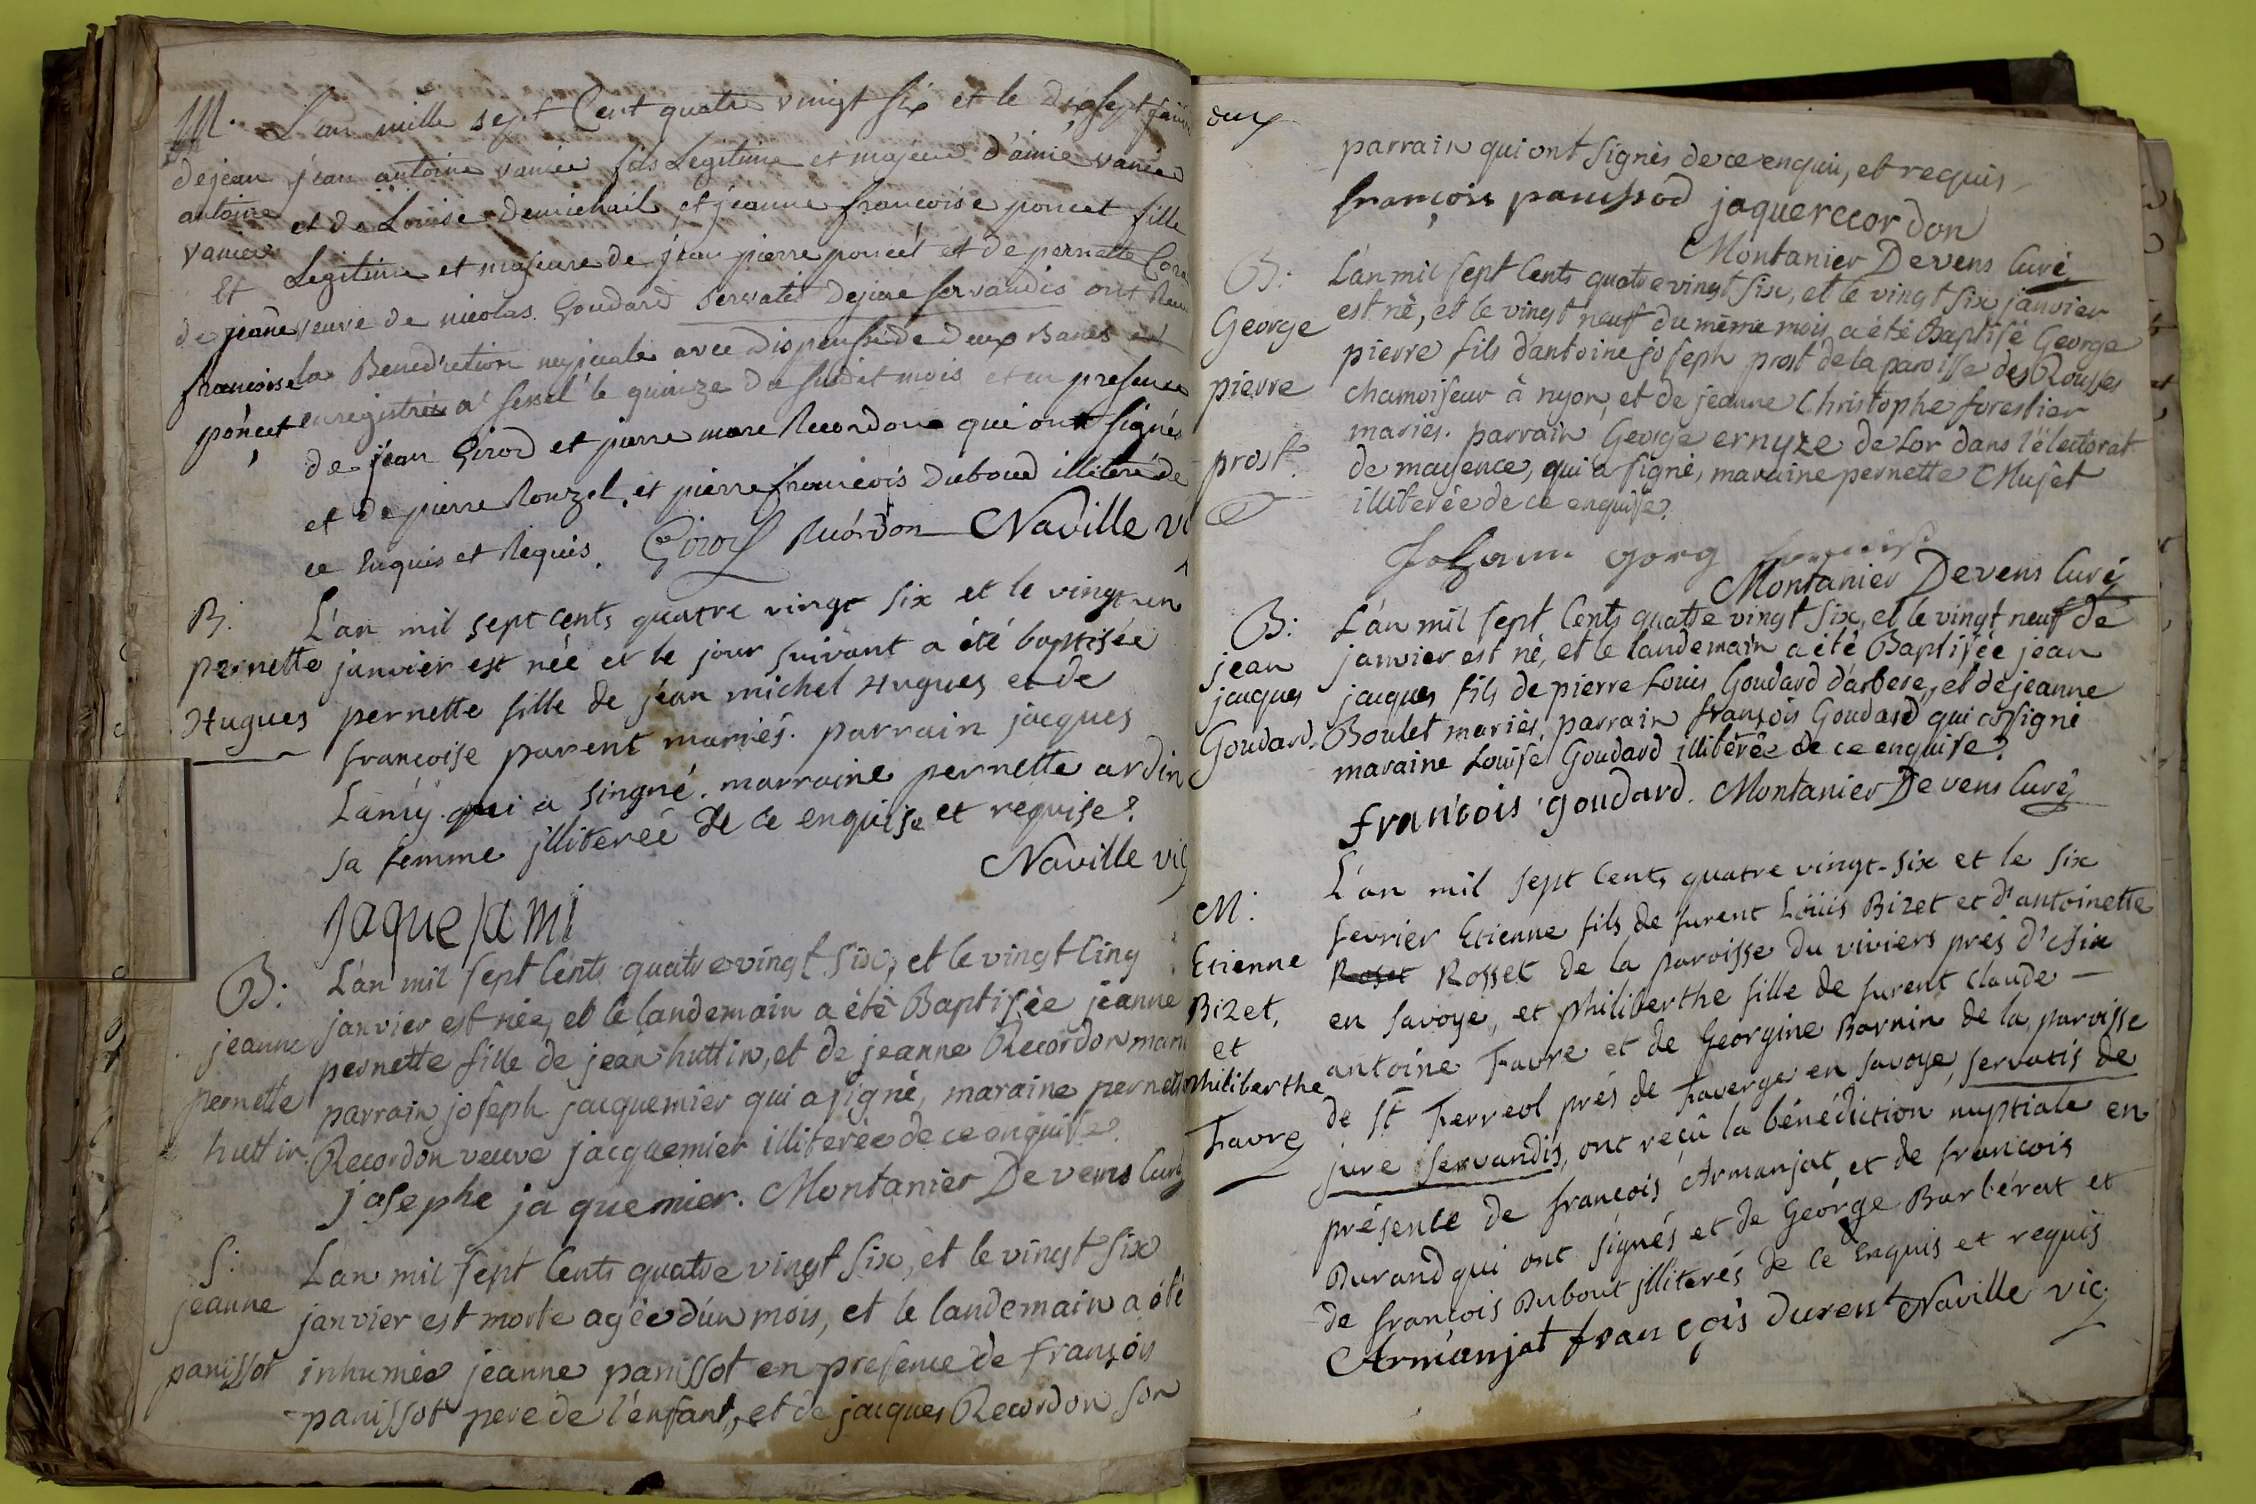 M. L'an mille sept Cent quatre vingt six et le dixsept
de jean jean antoine vanier fils Legitime et majeur d'aimé vanier
antoine et de Louise et jeanne francoise poncet fille
vanier Legitime et majeure de jean pierre poncet et de pernette
Et
de jeanne veuve de nicolas Goudard servatis dejure servandis ont
francoise la Benediction nuptiale avec dispense de deux Bancs
poncet enregistrée a le quinze du susdit mois et en presence
de jean Girod et pierre marc Recordon qui ont signés
et de pierre Rouzel, et pierre francois Duboud illiteré de
ce Enquis et Requis. Girod Recordon Naville
B. L'an mil sept cents quatre vingt six et le vingt un
pernette janvier est née et le jour suivant a été baptisée
Hugues pernette fille de jean michel Hugues et de
francoise parent mariés. parrain jacques
Lamÿ qui a singné. marraine pernette ardin
sa femme jlliterée de ce enquise et requise.
Naville vic
jaque lami
B: L'an mil sept Cents quatre vingt six, et le vingt Cinq
janvier est née, et le landemain a été Baptisée jeanne
jeanne pernette fille de jean huttin, et de jeanne Recordon
pernette parrain joseph jacquemier qui a signé, maraine
huttin. Recordon veuve jacquemier illiterée de ce enquise.
josephe ja quemier. Montanier Devens Curé
S: L'an mil sept Cents quatre vingt six, et le vingt six
jeanne janvier est morte agée d'un mois, et le landemain a été
panissot inhumée jeanne panissot en presence de françois
panissot pere de l'enfant, et de jacques Recordon son
deux
parrain qui ont signés de ce enquis, et requis
françois panissod jaquereccordon
Montanier Devens Curé
B: L'an mil sept Cents quatre vingt six, et le vingt six janvier
George est né, et le vingt neuf du même mois a été Baptisé George
pierre pierre fils d'antoine joseph prost de la paroisse des Rousses
chamoiseur à nyon, et de jeanne Christophe forestier
prost. mariés. parrain George ernyze de Lor dans l'électorat
de mayence, qui a signé, maraine pernette Muset
illiterée de ce enquise.
Johann gorg
Montanier Devens Curé
B: L'an mil sept Cents quatre vingt six, et le vingt neuf de
jean janvier est né, et le landemain a été Baptisée jean
jacques jacques fils de pierre Louis Goudard d'arbere, et de jeanne
Goudard. Boulet mariés, parrain françois Goudard qui a signé
maraine Louise Goudard illiterée de ce enquise.
francois goudard. Montanier Devens Curé
M: L'an mil sept Cents quatre vingt-six et le six
fevrier Etienne fils de furent Loüis Bizet et d'antoinette
Etienne Roset Rosset de la paroisse du viviers prés d'Aix
Bizet, en Savoye, et philiberthe fille de furent claude
et antoine Favre et de Georgine Barnin de la paroisse
philiberthe de St Ferreol prés de Faverge en Savoye, servatis de
Favre jure servandis, ont reçû la bénédiction nuptiale en
présence de francois Armanjat et de francois
Durand qui ont signés et de George Barbérat et
de francois Dubout jlliterés de ce Enquis et requis
Armanjat françois durent Naville vic.